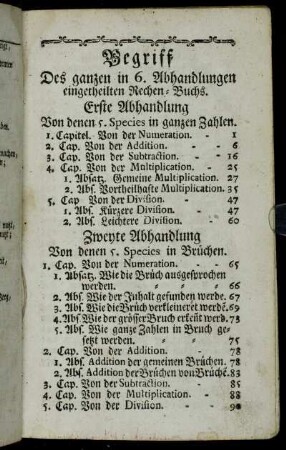 Begriff
Des ganzen in 6. Abhandlungen
eingetheilten Rechen-Buchs.
Erste Abhandlung
Von denen 5. Species in ganzen Zahlen.
1. Capitel. Von der Numeration. - 1
2. Cap. Von der Addition. - 6
3. Cap. Von der Subtraction. - 16
4. Cap. Von der Multiplication. - 25
1. Absatz. Gemeine Multiplication. 27
2. Abs. Vortheilhafte Multiplication. 35
5. Cap Von der Division. - 47
1. Abs. Kürzere Division. - 47
2. Abs. Leichtere Division. - 60
Zweyte Abhandlung
Von denen 5. Species in Brüchen.
1. Cap. Von der Numeration. - 65
1. Absatz. Wie die Brüch ausgesprochen
werden. - - - 66
2. Abs. Wie der Inhalt gefunden werde. 67
3. Abs. Wie die Brüch verkleineret werdē. 69
4. Abs. Wie der grösser Bruch erkeñt werd. 73
5. Abs. Wie ganze Zahlen in Bruch ge-
setzt werden. - - 75
2. Cap. Von der Addition. - 78
1. Abs. Addition der gemeinen Brüchen. 78
2. Abs. Addition der Brüchen von Brüchē. 83
3. Cap. Von der Subtraction. - 85
4. Cap. Von der Multiplication. - 88
5. Cap. Von der Division. - 90